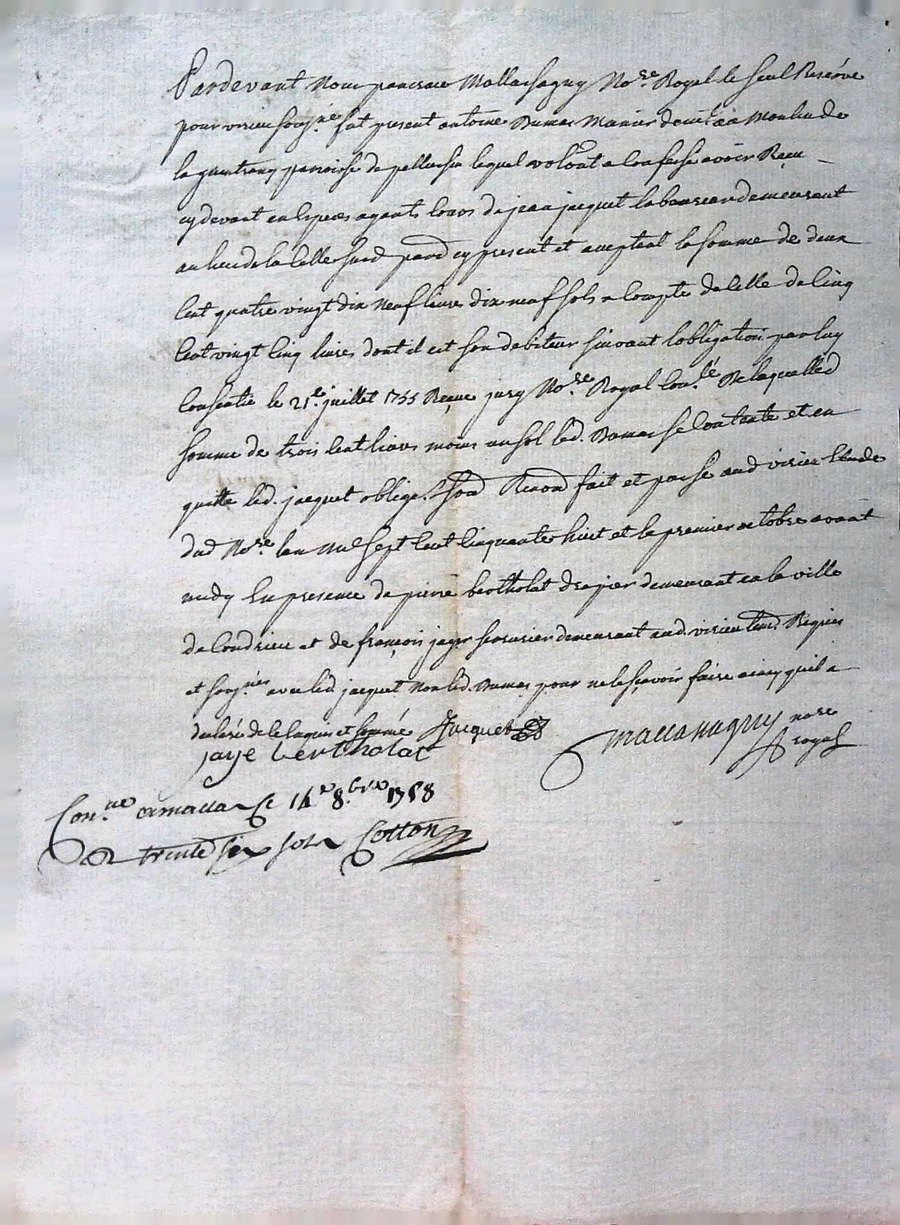 Pardevant Nous pancrace Mallassagny No.re Royal le seul Reservé
pour virieu soug.né fut present antoine Dumas Manier demt au Moulin de
la paroisse de pellussin lequel volont.t a confessé avoir Recu
cydevant en espèces agents cours de jean jacquet laboureur demeurant
au lieu de la susd. parr. cy present et aceptant la somme de deux
cent quatre vingt dix neuf livre dix neuf sols a compte de celle de cinq
cent vingt cinq livres dont il est son debiteur suivant l'obligation par luy
consentie le 21e juillet 1755 Reçue jury No.re Royal De laquelled.
somme de trois cent livres moins un sol led. Dumas se contante et en
quitte led. jacquet oblige. Renond. fait et passé aud virieu Etude
dud No.re lan Mil sept cent cinquante huit et le premier octobre avant
midy En presence de pierre bertholat drapier demeurant en la ville
de Condrieu et de françois jaye serrurier demeurant aud. virieu Requis
et soug.nés avec led jacquet Non led. Dumas pour ne le sçavoir faire ainsy quil a
declaré de ce enquis et sommé Jacquet
jaye bertholat mallassagny no.re
royal
Con.né a malla Ce 14e 8.bre 1758
trente six sols Cotton